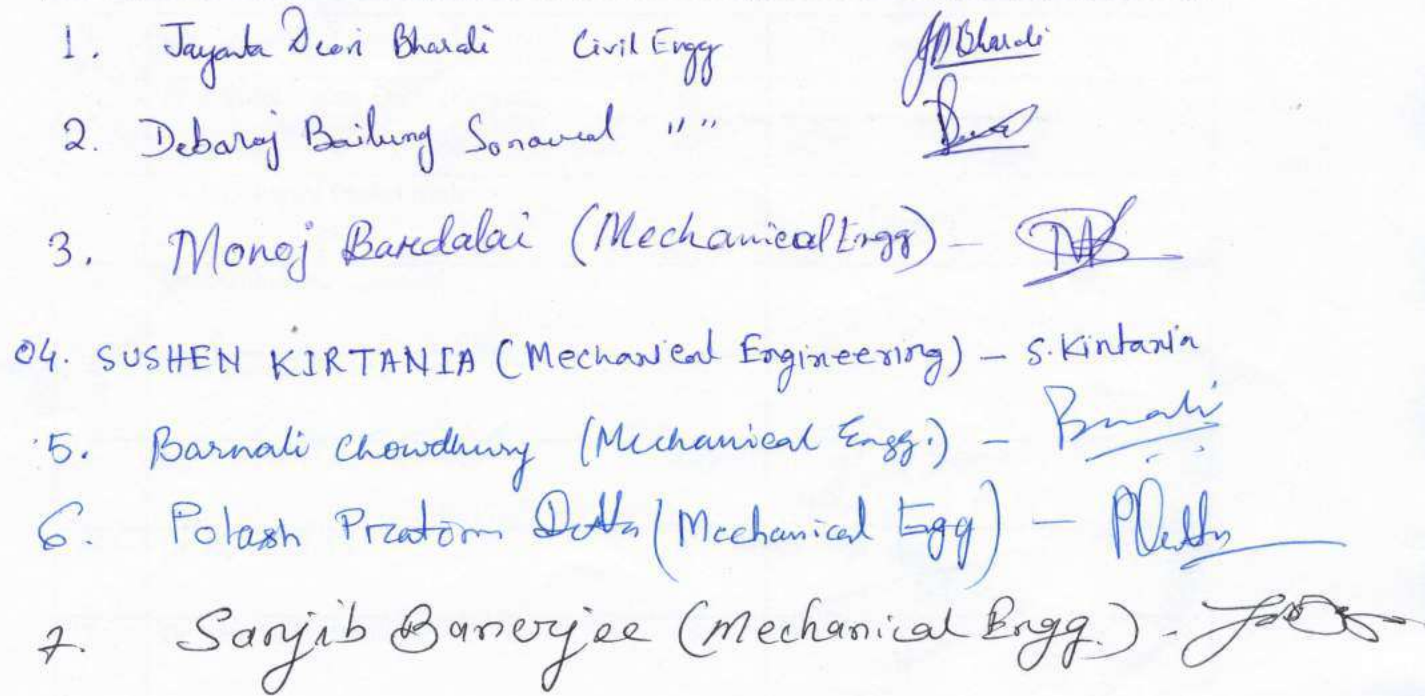 1. Jayanta Deori Bharali Civil Engg JDBharali
2. Debaraj Bailung Sonowal " "
3. Monoj Bardalai (Mechanical Engg) -
04. SUSHEN KIRTANIA (Mechanical Engineering) - S. Kirtania
5. Barnali Chowdhury (Mechanical Engg.) - Barnali
6. Polash Pratom Dutta (Mechanical Egg) - PDutta
7. Sanjib Banerjee (Mechanical Engg.) -